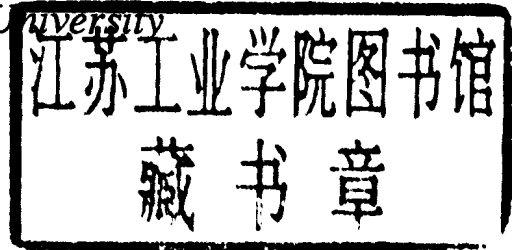 University
江苏工业学院图书馆
藏书章